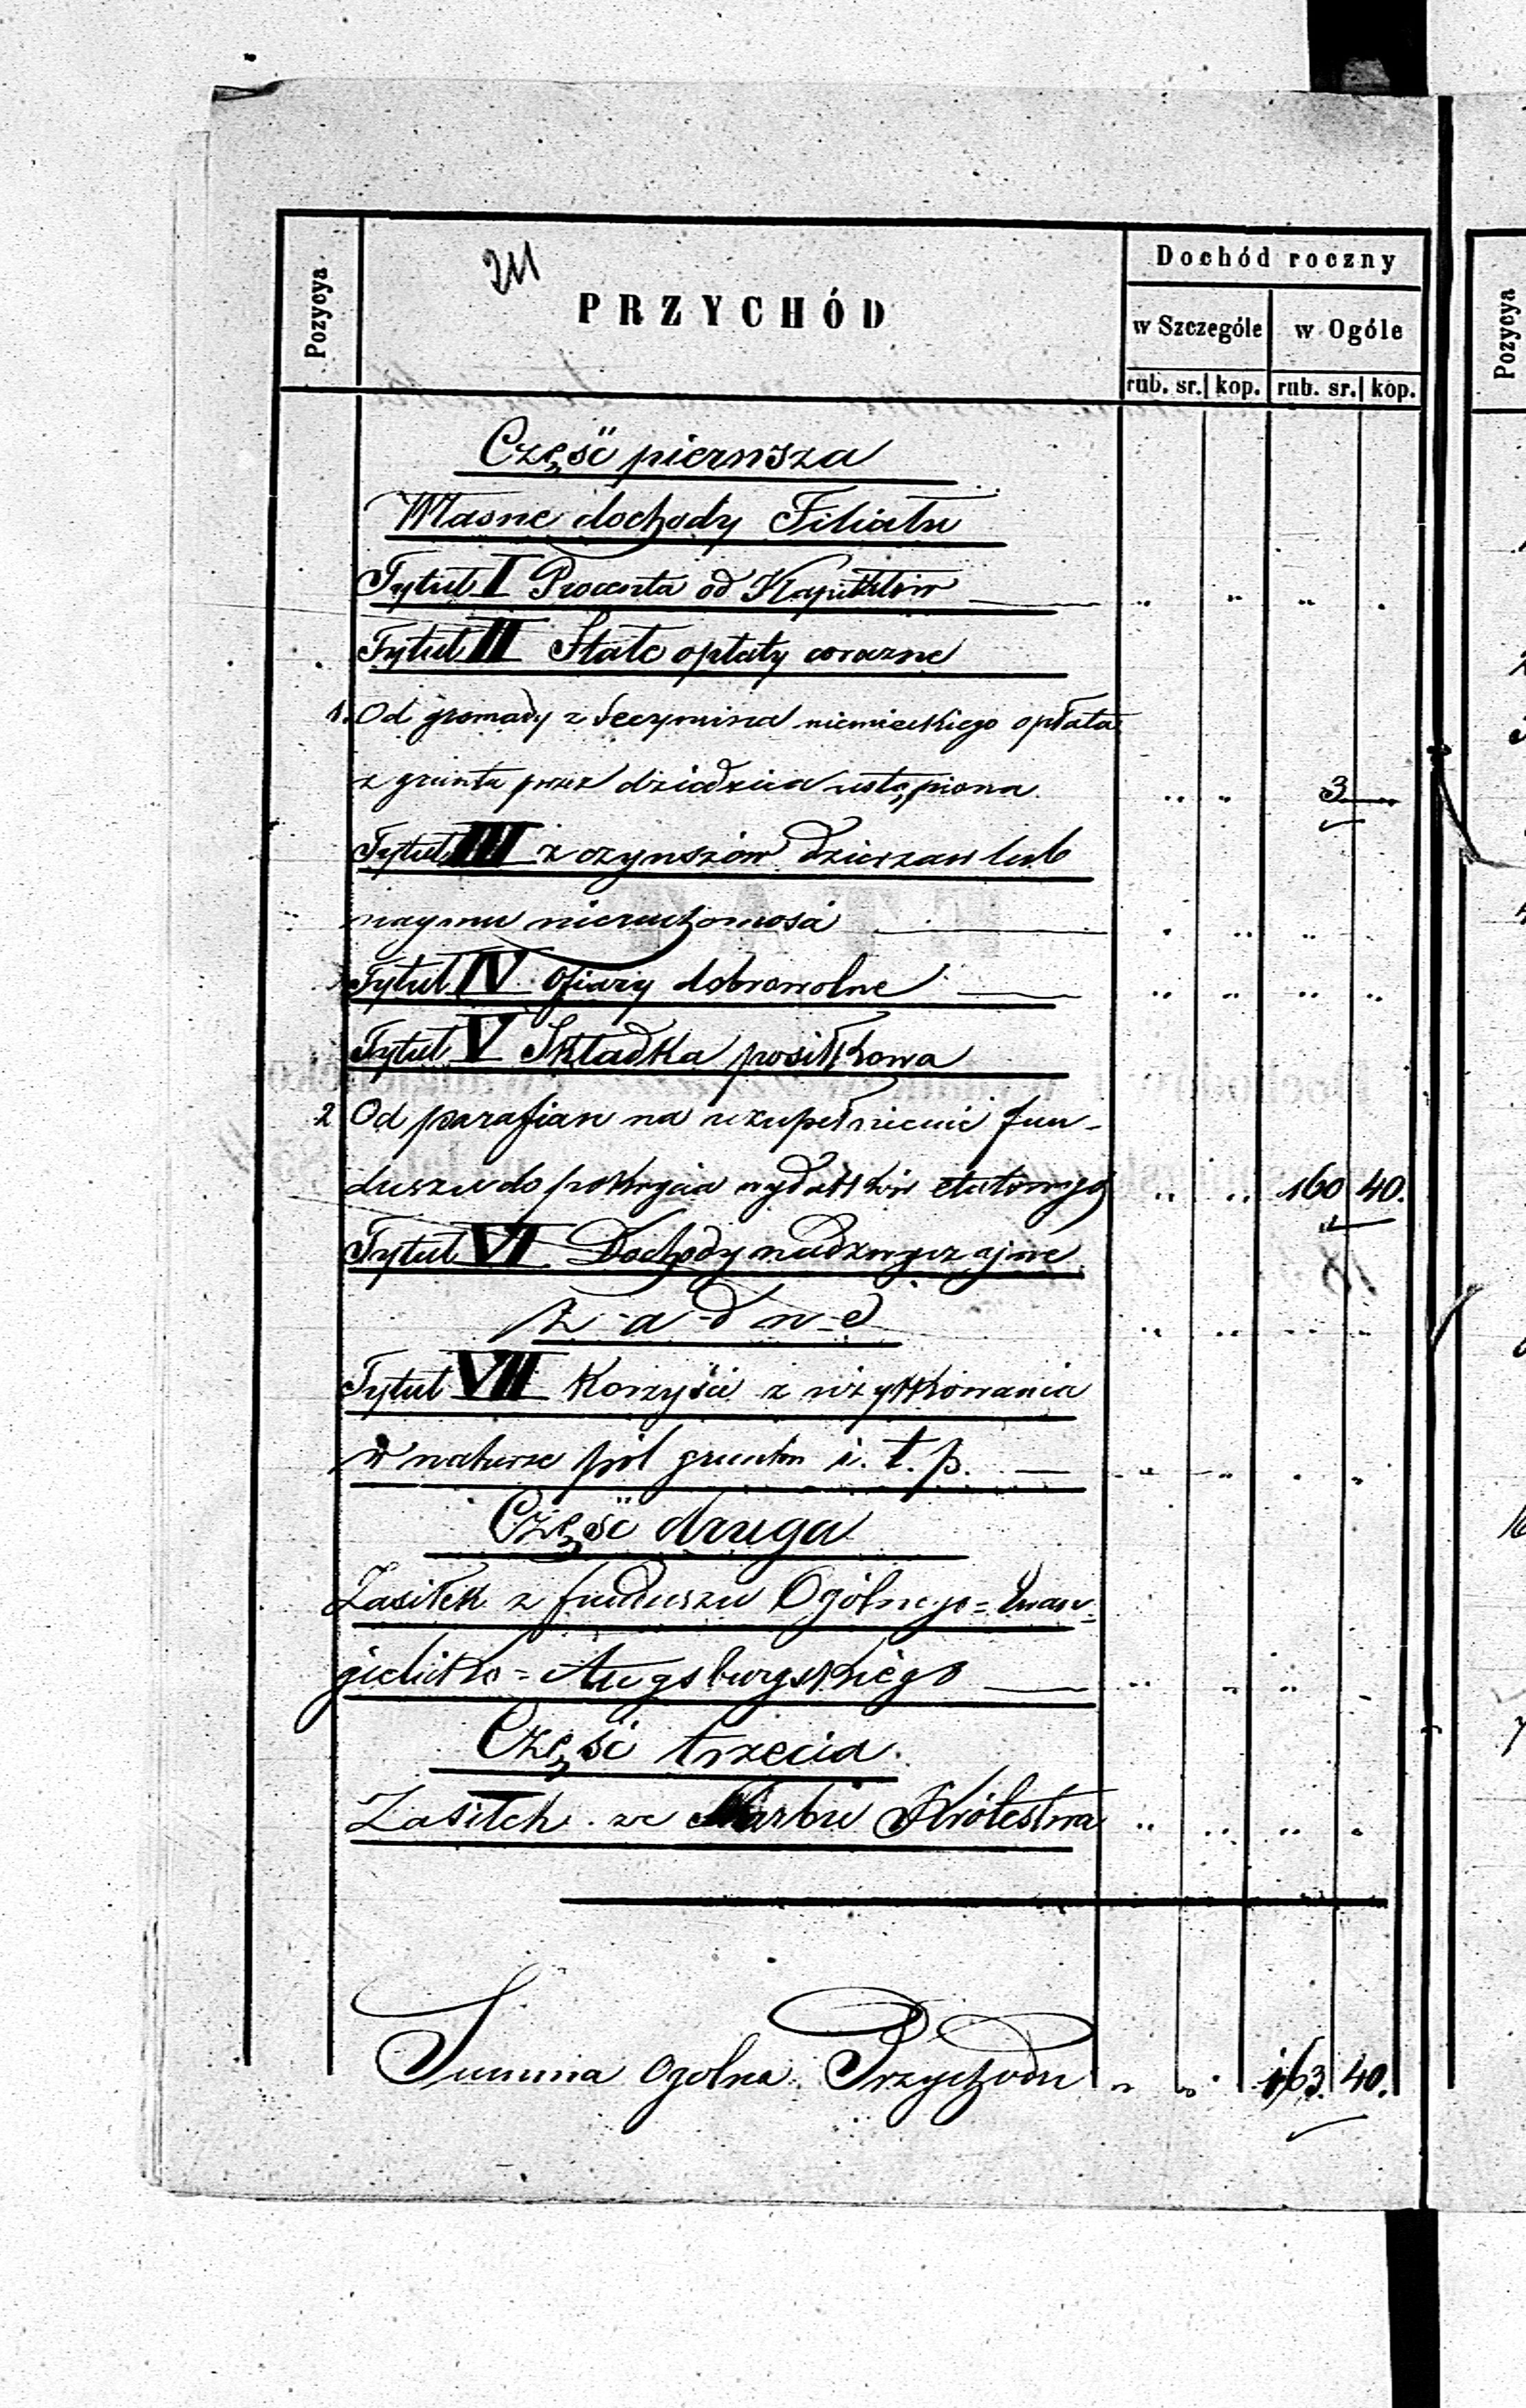 211
Pozycya
PRZYCHÓD
Dochód roczny
w Szczególe
w Ogóle
rub. sr. kop. rub. sr. kop.
Część pierwsza
Własne dochody Filiału
Tytuł I Procenta od Kapitałów
Tytuł II Stałe opłaty coroczne
1. Od gromady z Secymina niemieckiego opłata
z gruntu przez dziedzica ustąpiona 3 —
Tytuł III z czynszów dzierzaw lub
naymu nieruchomości
Tytuł IV Ofiary dobrowolne
Tytuł V Składka posiłkowa
2 Od parafian na uzupełnienie fun-
duszu do pokrycia wydatków etatowych 160 40.
Tytuł VI Dochody nadzwyczajne
Ż-a-d-n-e
Tytuł VII Korzyści z użytkowania
w naturze pól gruntów i. t. p.
Część druga
Zasiłek z funduszu Ogólnego = Ewan-
gielicko = Augsburgskiego
Część trzecia
Zasiłek ze Skarbu Królestwa
Summa ogolna Przychodu 163. 40.
Pozycya